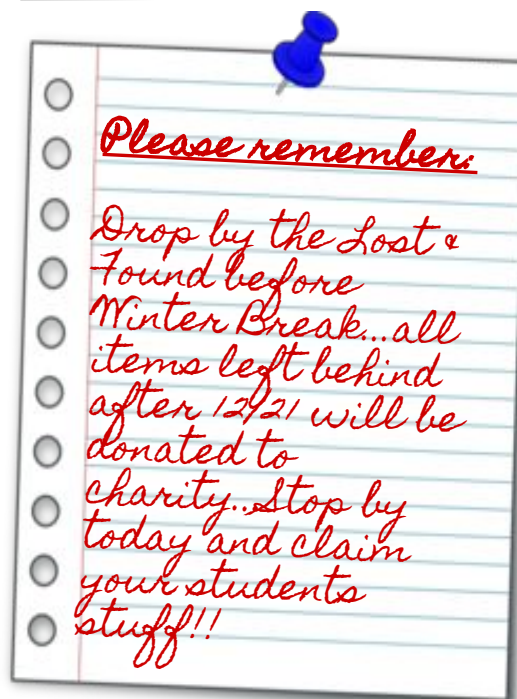 Please remember:
Drop by the Lost &
Found before
Winter Break...all
items left behind
after 12/21 will be
donated to
charity..Stop by
today and claim
your students
stuff!!